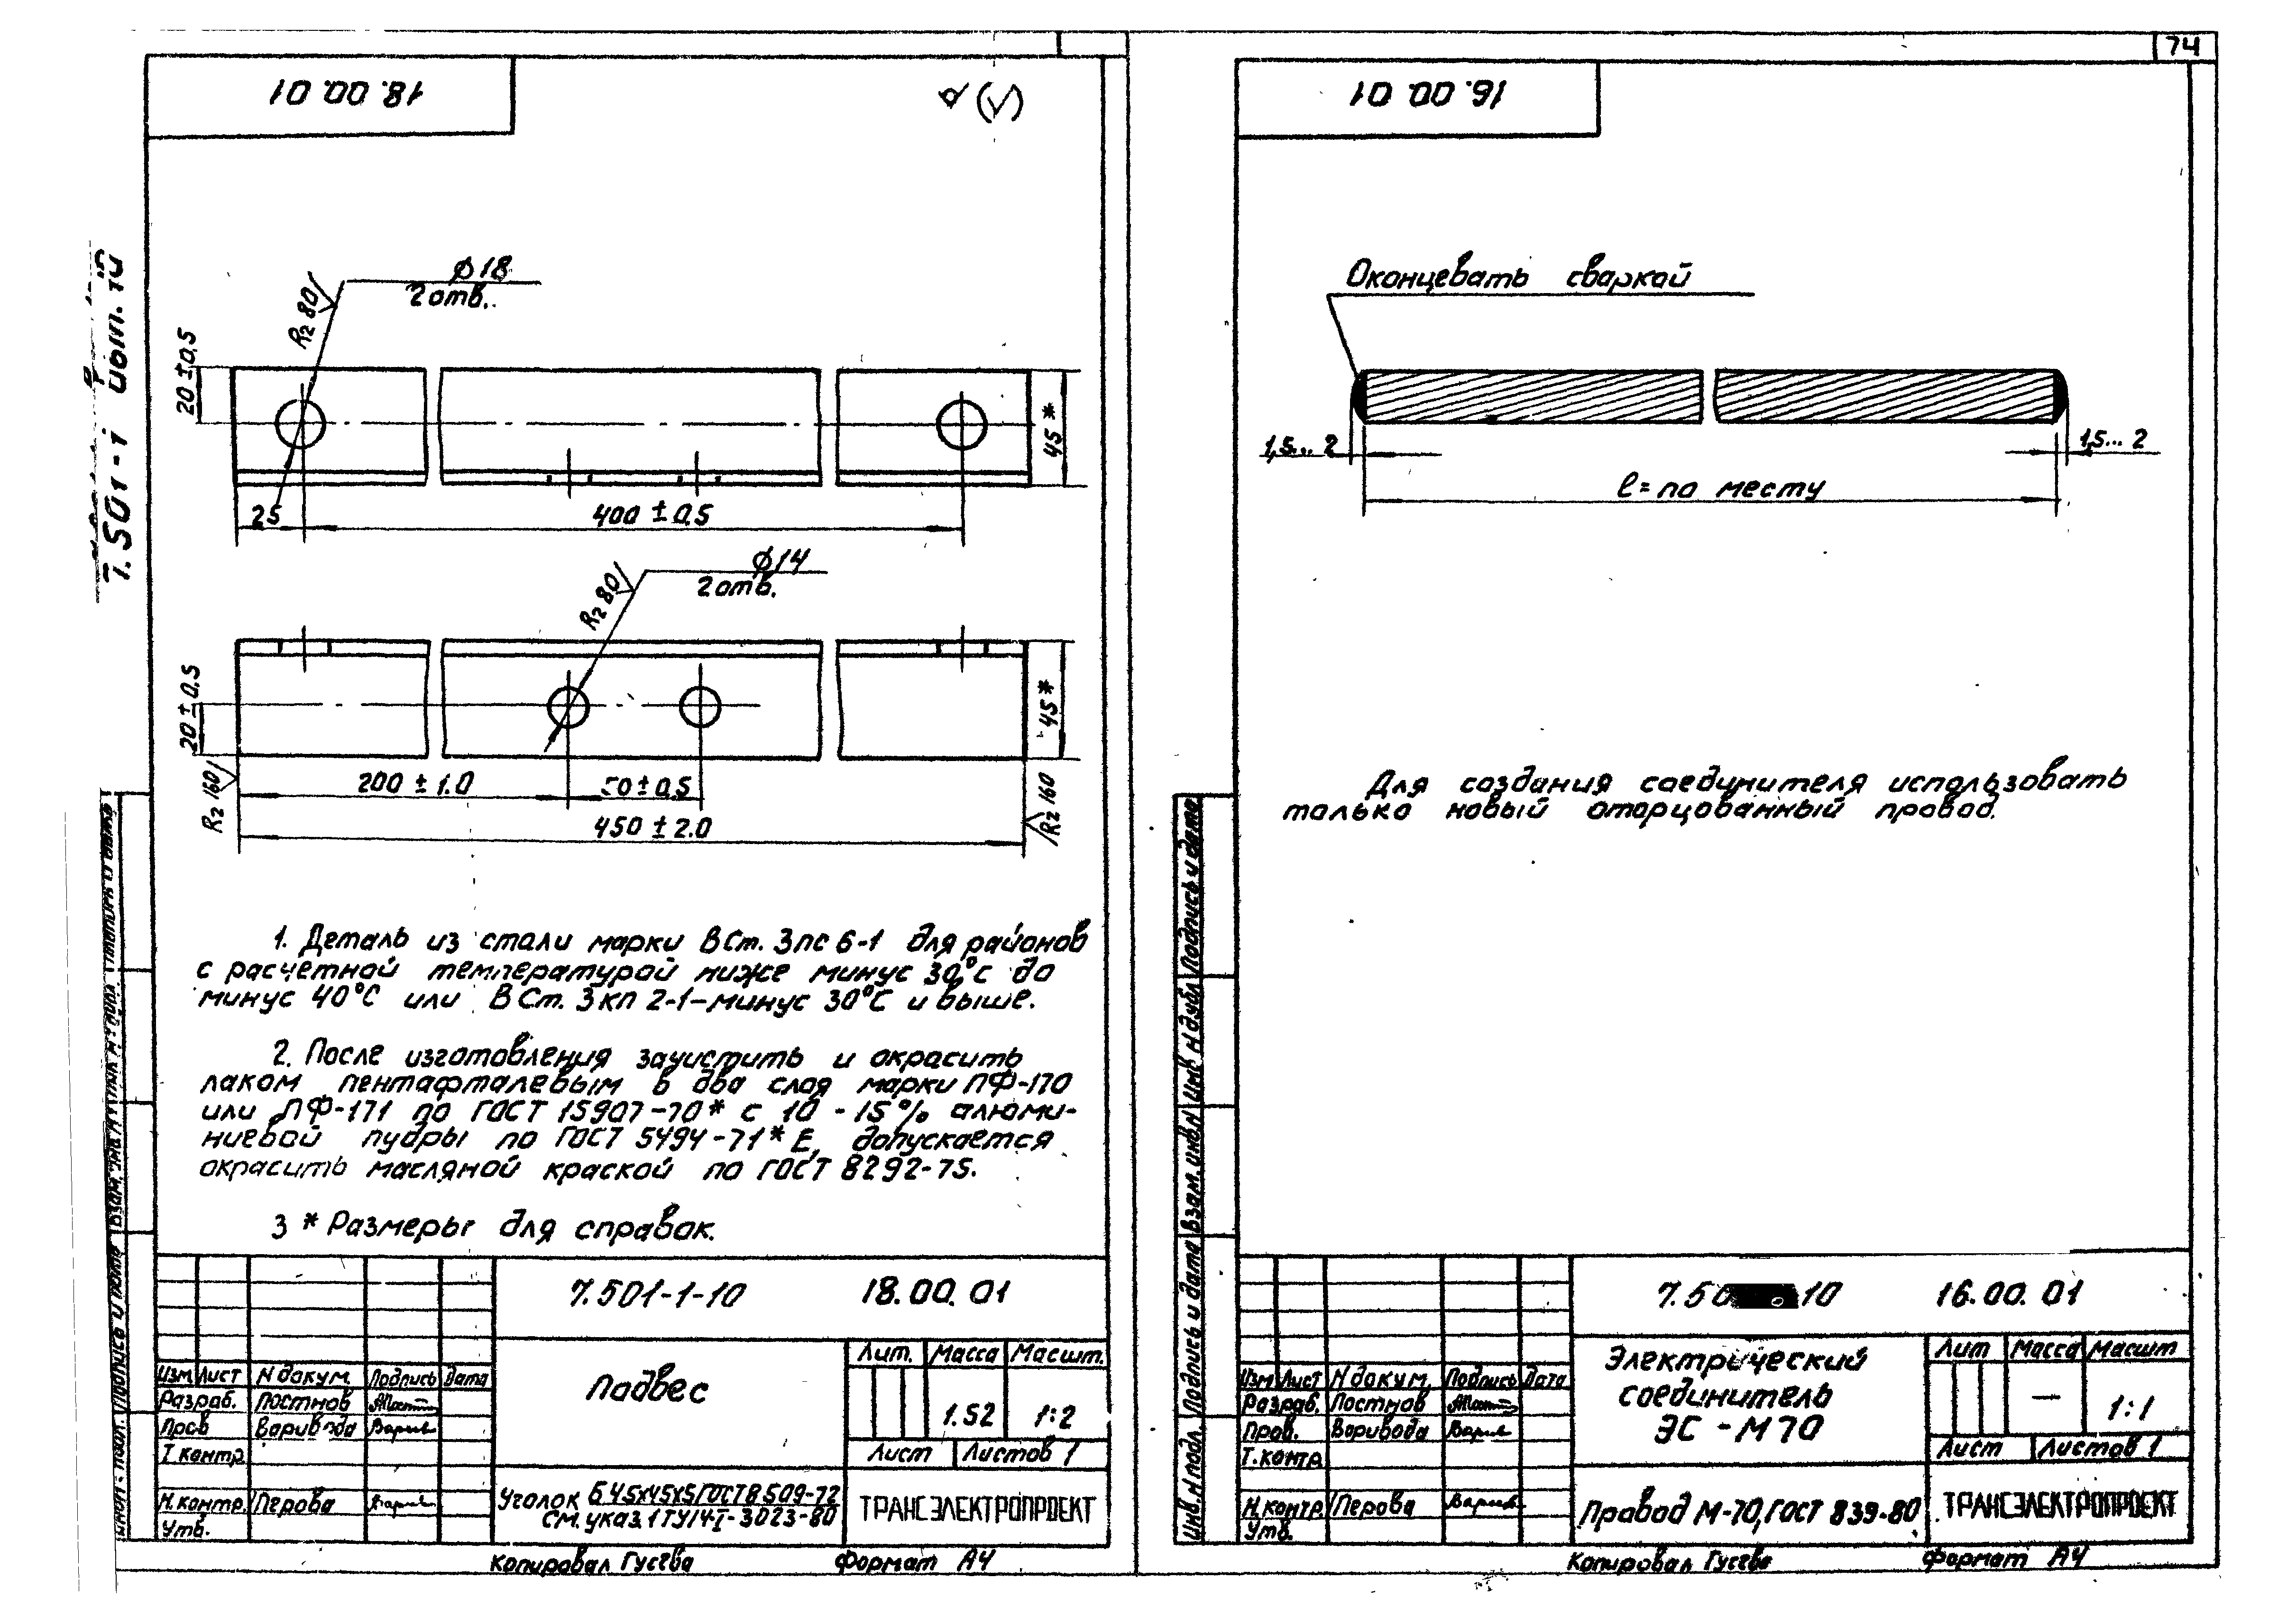 18.00.01
7.501-1 вып. 10
∅18
2 отв.
Rz 80
20±0,5
45*
25
400±0,5
∅14
2 отв.
Rz 80
20±0,5
45*
200±1.0
50±0,5
450±2.0
Rz 160
Rz 160
1. Деталь из стали марки ВСт. 3пс 6-1 для районов
с расчетной температурой ниже минус 30°С до
минус 40°С или ВСт. 3кп 2-1-минус 30°С и выше.
2. После изготовления зачистить и окрасить
лаком пентафталевым в два слоя марки ПФ-170
или ПФ-171 по ГОСТ 15907-70* с 10-15% алюми-
ниевой пудры по ГОСТ 5494-71*Е, допускается
окрасить масляной краской по ГОСТ 8292-75.
3 * Размеры для справок.
7.501-1-10 18.00.01
Подвес
Лит. Масса Масшт.
1.52 1:2
Лист Листов 1
Изм Лист N докум. Подпись Дата
Разраб. Постнов
Пров Варивода
Т контр.
Н.контр. Перова
Утв.
Уголок Б 45х45х5 ГОСТ 8509-72
См. указ. 1 ТУ14-I-3023-80
ТРАНСЭЛЕКТРОПРОЕКТ
Копировал Гусева Формат А4
74
16.00.01
Оконцевать сваркой
1,5...2
1,5...2
ℓ=по месту
Для создания соединителя использовать
только новый оторцованный провод.
7.50 10 16.00.01
Электрический
соединитель
ЭС-М70
Лит Масса Масшт
— 1:1
Лист Листов 1
Изм Лист N докум. Подпись Дата
Разраб. Постнов
Пров. Варивода
Т.контр
Н.контр. Перова
Утв.
Провод М-70, ГОСТ 839-80
ТРАНСЭЛЕКТРОПРОЕКТ
Инв. N подл. Подпись и дата Взам. инв. N Инв N дубл Подпись и дата
Копировал Гусева Формат А4